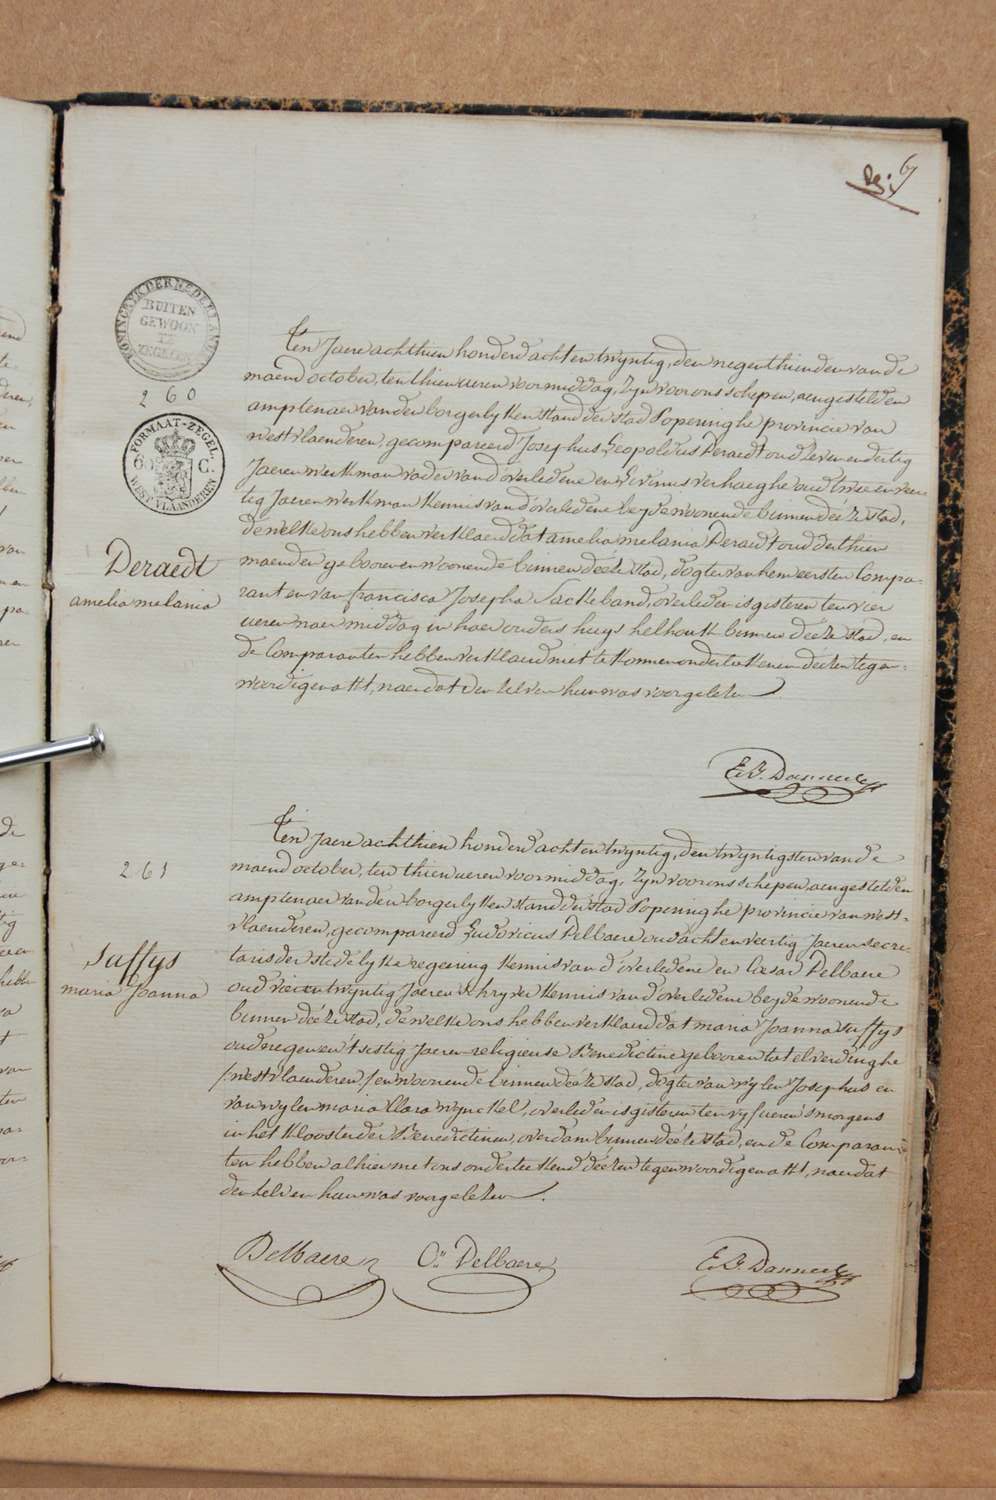 Rg: 67
KONINGRYK DER NEDERLANDEN
BUITEN
GEWOON
TE
ZEGELEN
260
FORMAAT-ZEGEL.
60 C.
WEST-VLAANDEREN
Deraedt
amelia melania
Ten Jaere achthien honderd acht en twyntig, den negenthienden van de
maend october, ten thien ueren voormiddag, zyn voor ons schepen, aengestelden
amptenaer van den borgerlyken stand der stad Poperinghe provincie van
westvlaenderen, gecompareerd Josephus Leopoldus Deraedt oud zeven en dertig
Jaeren werkman vader van d'overledene en Livinus verhaeghe oud twee en veer
tig Jaeren werkman kennis van d'overledene beyde woonende binnen deéze stad,
de welke ons hebben verklaerd dat amelia melania Deraedt oud derthien
maenden gebooren en woonende binnen deéze stad, dogter van hem eersten Compa-
rant en van francisca Josepha Lackeband, overleden is gisteren ten vier
ueren naer middag in haer ouders huys helhouk binnen deéze stad, en
de Comparanten hebben verklaerd niet te konnen onderteekenen deézen tegen-
woordigen akt, naer dat den zelven hun was voorgelezen
E.B. Danneel
261
Suffys
maria Joanna
Ten jaere achthien honderd acht en twyntig, den twyntigsten van de
maend october, ten thien ueren voormiddag, zyn voor ons schepen, aengestelden
amptenaer van den borgerlyken stand der stad Poperinghe provincie van west-
vlaenderen, gecompareerd Ludovicus Delbaere oud acht en veertig Jaeren secre-
taris der stedelyke regering kennis van d'overledene en Cæsar Delbaere
oud vier en twyntig Jaeren schryver kennis van d'overledene beyde woonende
binnen deéze stad, de welke ons hebben verklaerd dat maria Joanna suffys
oud negen en t'sestig Jaeren religieuse Benedictine gebooren tot elverdinghe
/westvlaenderen/ en woonende binnen deéze stad, dogter van wylen Josephus en
van wylen maria Clara wynckel, overleden is gisteren ten vyf ueren 's morgens
in het klooster der Benedictinen, overdam binnen deéze stad, en de Comparan-
ten hebben alhier met ons onderteekend deézen tegenwoordigen akt, naer dat
den zelven hun was voorgelezen.
Delbaere
Cr. Delbaere
E.B. Danneel